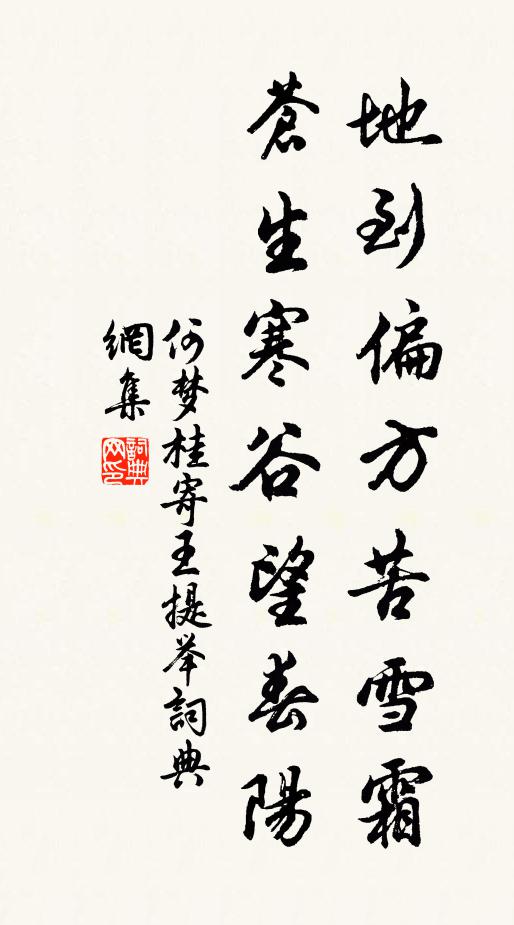 地到偏方苦雪霜
蒼生寒谷望春陽
何梦桂寄王提举詞典
網集
詞典
网印